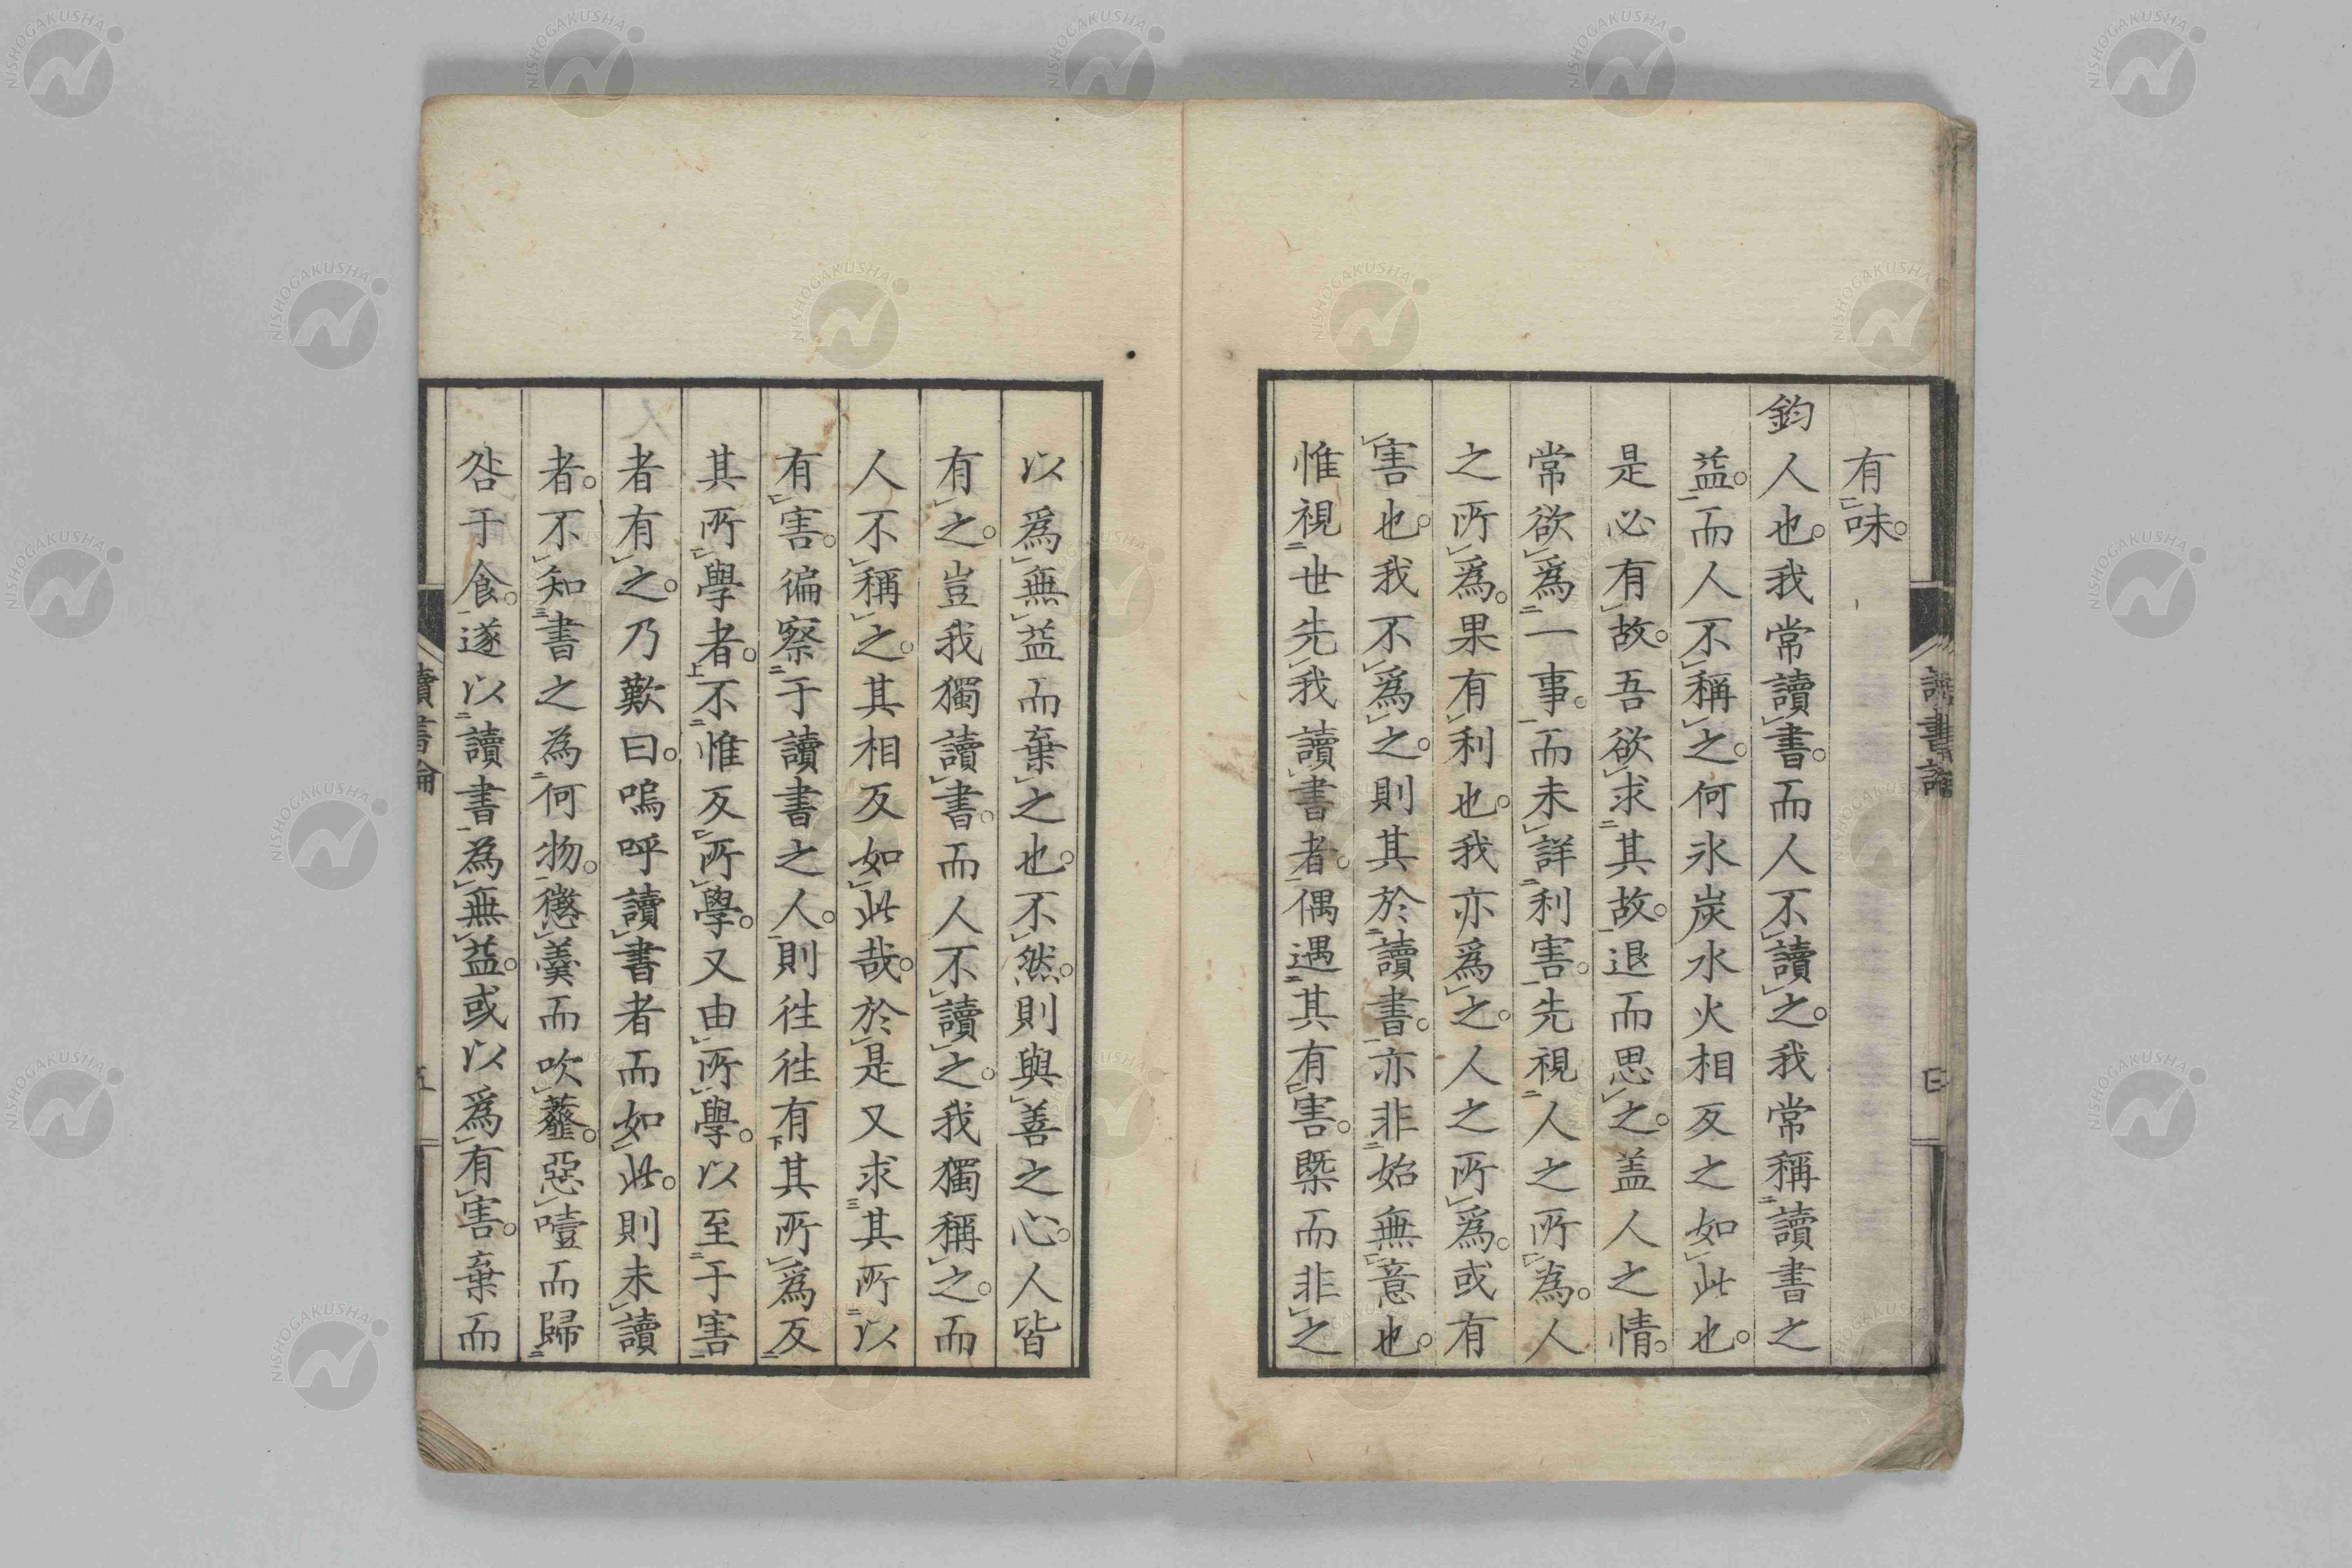 有味。
鈞人也。我常讀書。而人不讀之。我常稱讀書之
益。而人不稱之。何氷炭水火相反之如此也。
是必有故。吾欲求其故。退而思之。盖人之情。
常欲爲一事。而未詳利害。先視人之所為。人
之所爲。果有利也。我亦爲之。人之所爲。或有
害也。我不爲之。則其於讀書。亦非始無意也。
惟視世先我讀書者。偶遇其有害。槩而非之
以爲無益而棄之也。不然。則與善之心。人皆
有之。豈我獨讀書。而人不讀之。我獨稱之。而
人不稱之。其相反如此哉。於是又求其所以
有害。徧察于讀書之人。則往往有其所爲反
其所學者。不惟反所學。又由所學。以至于害
者有之。乃歎曰。嗚呼讀書者而如此。則未讀
者。不知書之為何物。懲羹而吹虀。惡噎而歸
咎于食。遂以讀書為無益。或以爲有害。棄而
讀書論
NISHOGAKUSHA